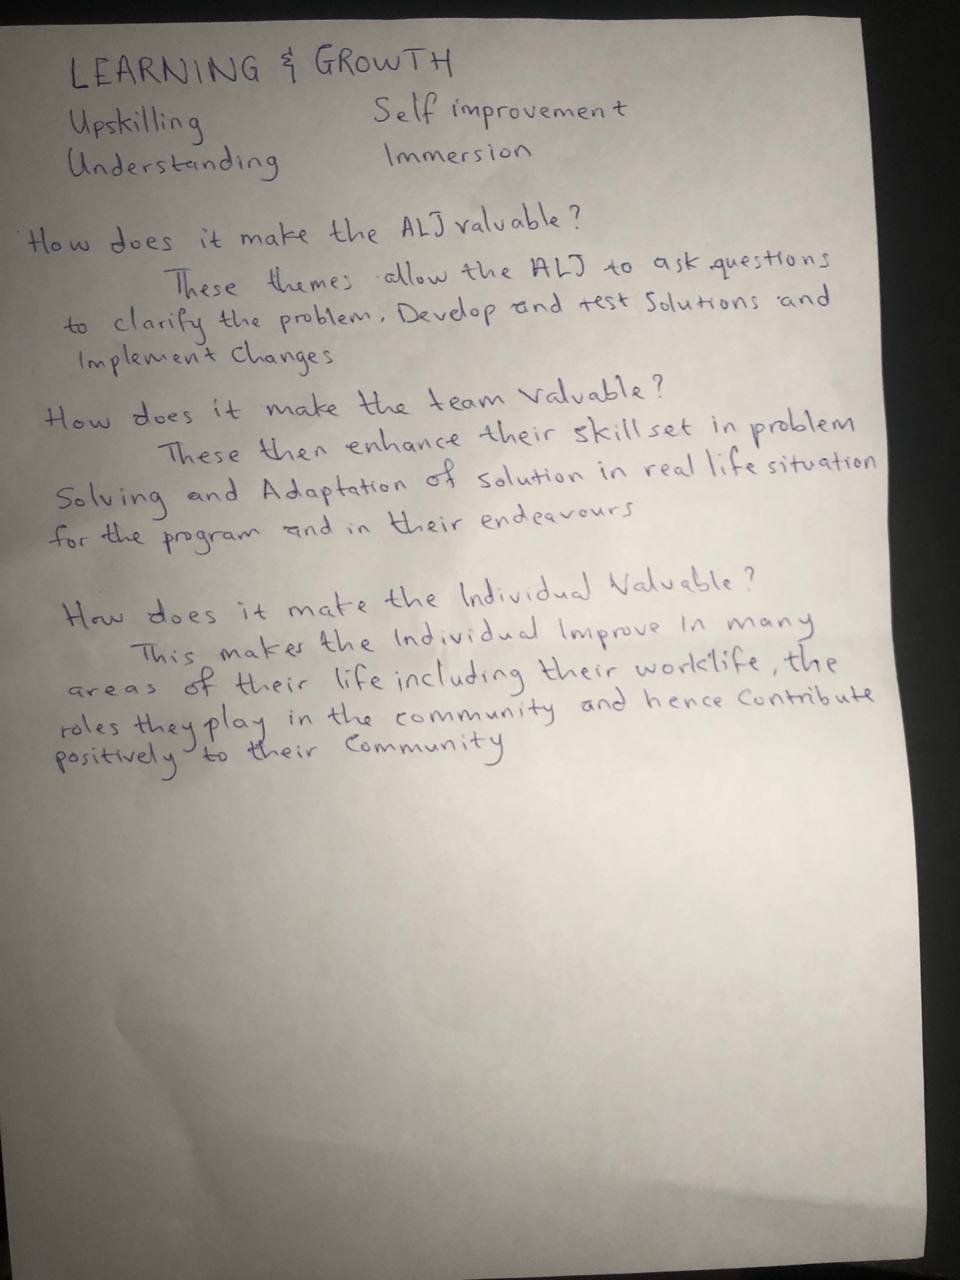 LEARNING & GROWTH
Upskilling Self improvement
Understanding Immersion
How does it make the ALJ valuable?
These themes allow the ALJ to ask questions
to clarify the problem. Develop and test Solutions and
Implement Changes
How does it make the team Valuable?
These then enhance their skill set in problem
Solving and Adaptation of solution in real life situation
for the program and in their endeavours
How does it make the Individual Valuable?
This makes the Individual Improve In many
areas of their life including their worklife, the
roles they play in the community and hence Contribute
positively to their Community